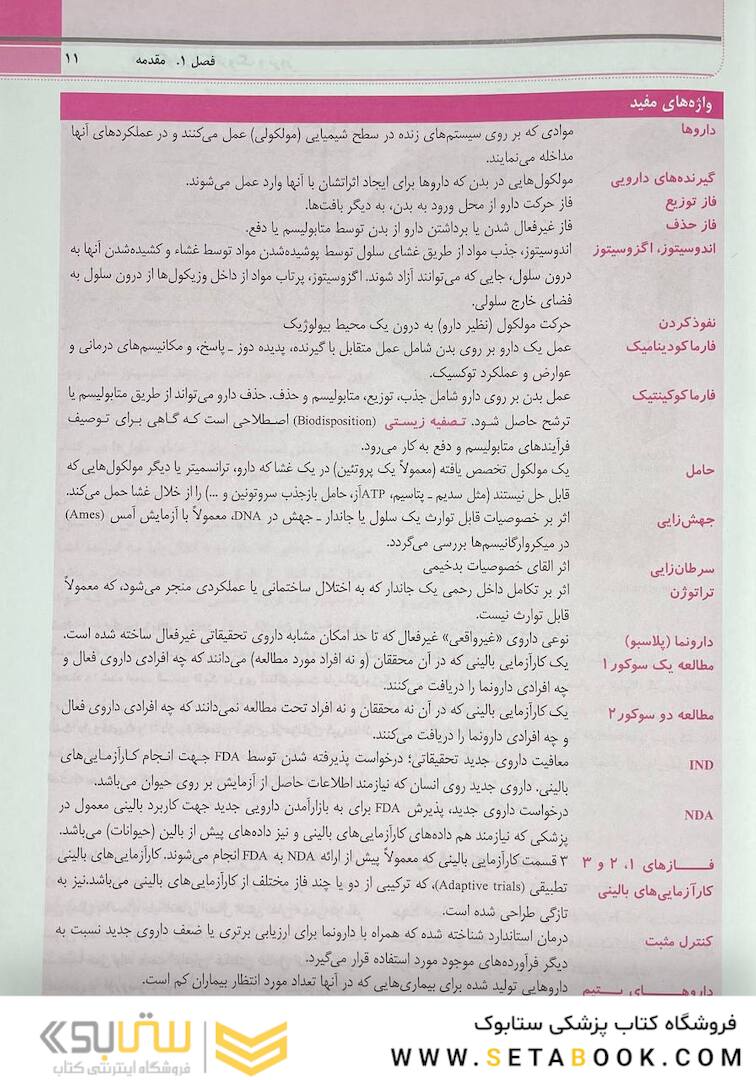 فصل ۱. مقدمه ۱۱
واژه‌های مفید
داروها موادی که بر روی سیستم‌های زنده در سطح شیمیایی (مولکولی) عمل می‌کنند و در عملکردهای آنها
مداخله می‌نمایند.
گیرنده‌های دارویی مولکول‌هایی در بدن که داروها برای ایجاد اثراتشان با آنها وارد عمل می‌شوند.
فاز توزیع فاز حرکت دارو از محل ورود به بدن، به دیگر بافت‌ها.
فاز حذف فاز غیرفعال شدن یا برداشتن دارو از بدن توسط متابولیسم یا دفع.
اندوسیتوز، اگزوسیتوز اندوسیتوز، جذب مواد از طریق غشای سلول توسط پوشیده‌شدن مواد توسط غشاء و کشیده‌شدن آنها به
درون سلول، جایی که می‌توانند آزاد شوند. اگزوسیتوز، پرتاب مواد از داخل وزیکول‌ها از درون سلول به
فضای خارج سلولی.
نفوذکردن حرکت مولکول (نظیر دارو) به درون یک محیط بیولوژیک
فارماکودینامیک عمل یک دارو بر روی بدن شامل عمل متقابل با گیرنده، پدیده دوز ـ پاسخ، و مکانیسم‌های درمانی و
عوارض و عملکرد توکسیک.
فارماکوکینتیک عمل بدن بر روی دارو شامل جذب، توزیع، متابولیسم و حذف. حذف دارو می‌تواند از طریق متابولیسم یا
ترشح حاصل شود. تصفیه زیستی (Biodisposition) اصطلاحی است که گاهی برای توصیف
فرآیندهای متابولیسم و دفع به کار می‌رود.
حامل یک مولکول تخصص یافته (معمولاً یک پروتئین) در یک غشا که دارو، ترانسمیتر یا دیگر مولکول‌هایی که
قابل حل نیستند (مثل سدیم ـ پتاسیم، ATPآز، حامل بازجذب سروتونین و ...) را از خلال غشا حمل می‌کند.
جهش‌زایی اثر بر خصوصیات قابل توارث یک سلول یا جاندار ـ جهش در DNA، معمولاً با آزمایش آمس (Ames)
در میکروارگانیسم‌ها بررسی می‌گردد.
سرطان‌زایی اثر القای خصوصیات بدخیمی
تراتوژن اثر بر تکامل داخل رحمی یک جاندار که به اختلال ساختمانی یا عملکردی منجر می‌شود، که معمولاً
قابل توارث نیست.
دارونما (پلاسبو) نوعی داروی «غیرواقعی» غیرفعال که تا حد امکان مشابه داروی تحقیقاتی غیرفعال ساخته شده است.
مطالعه یک سوکور ۱ یک کارآزمایی بالینی که در آن محققان (و نه افراد مورد مطالعه) می‌دانند که چه افرادی داروی فعال و
چه افرادی دارونما را دریافت می‌کنند.
مطالعه دو سوکور ۲ یک کارآزمایی بالینی که در آن نه محققان و نه افراد تحت مطالعه نمی‌دانند که چه افرادی داروی فعال
و چه افرادی دارونما را دریافت می‌کنند.
IND معافیت داروی جدید تحقیقاتی؛ درخواست پذیرفته شدن توسط FDA جهت انجام کارآزمایی‌های
بالینی. داروی جدید روی انسان که نیازمند اطلاعات حاصل از آزمایش بر روی حیوان می‌باشد.
NDA درخواست داروی جدید، پذیرش FDA برای به بازارآمدن دارویی جدید جهت کاربرد بالینی معمول در
پزشکی که نیازمند هم داده‌های کارآزمایی‌های بالینی و نیز داده‌های پیش از بالین (حیوانات) می‌باشد.
فازهای ۱، ۲ و ۳ ۳ قسمت کارآزمایی بالینی که معمولاً پیش از ارائه NDA به FDA انجام می‌شوند. کارآزمایی‌های بالینی
کارآزمایی‌های بالینی تطبیقی (Adaptive trials)، که ترکیبی از دو یا چند فاز مختلف از کارآزمایی‌های بالینی می‌باشد.نیز به
تازگی طراحی شده است.
کنترل مثبت درمان استاندارد شناخته شده که همراه با دارونما برای ارزیابی برتری یا ضعف داروی جدید نسبت به
دیگر فرآورده‌های موجود مورد استفاده قرار می‌گیرد.
داروهای یتیم داروهایی تولید شده برای بیماری‌هایی که در آنها تعداد مورد انتظار بیماران کم است.
فروشگاه کتاب پزشکی ستابوک
WWW.SETABOOK.COM
ستابوک
فروشگاه اینترنتی کتاب